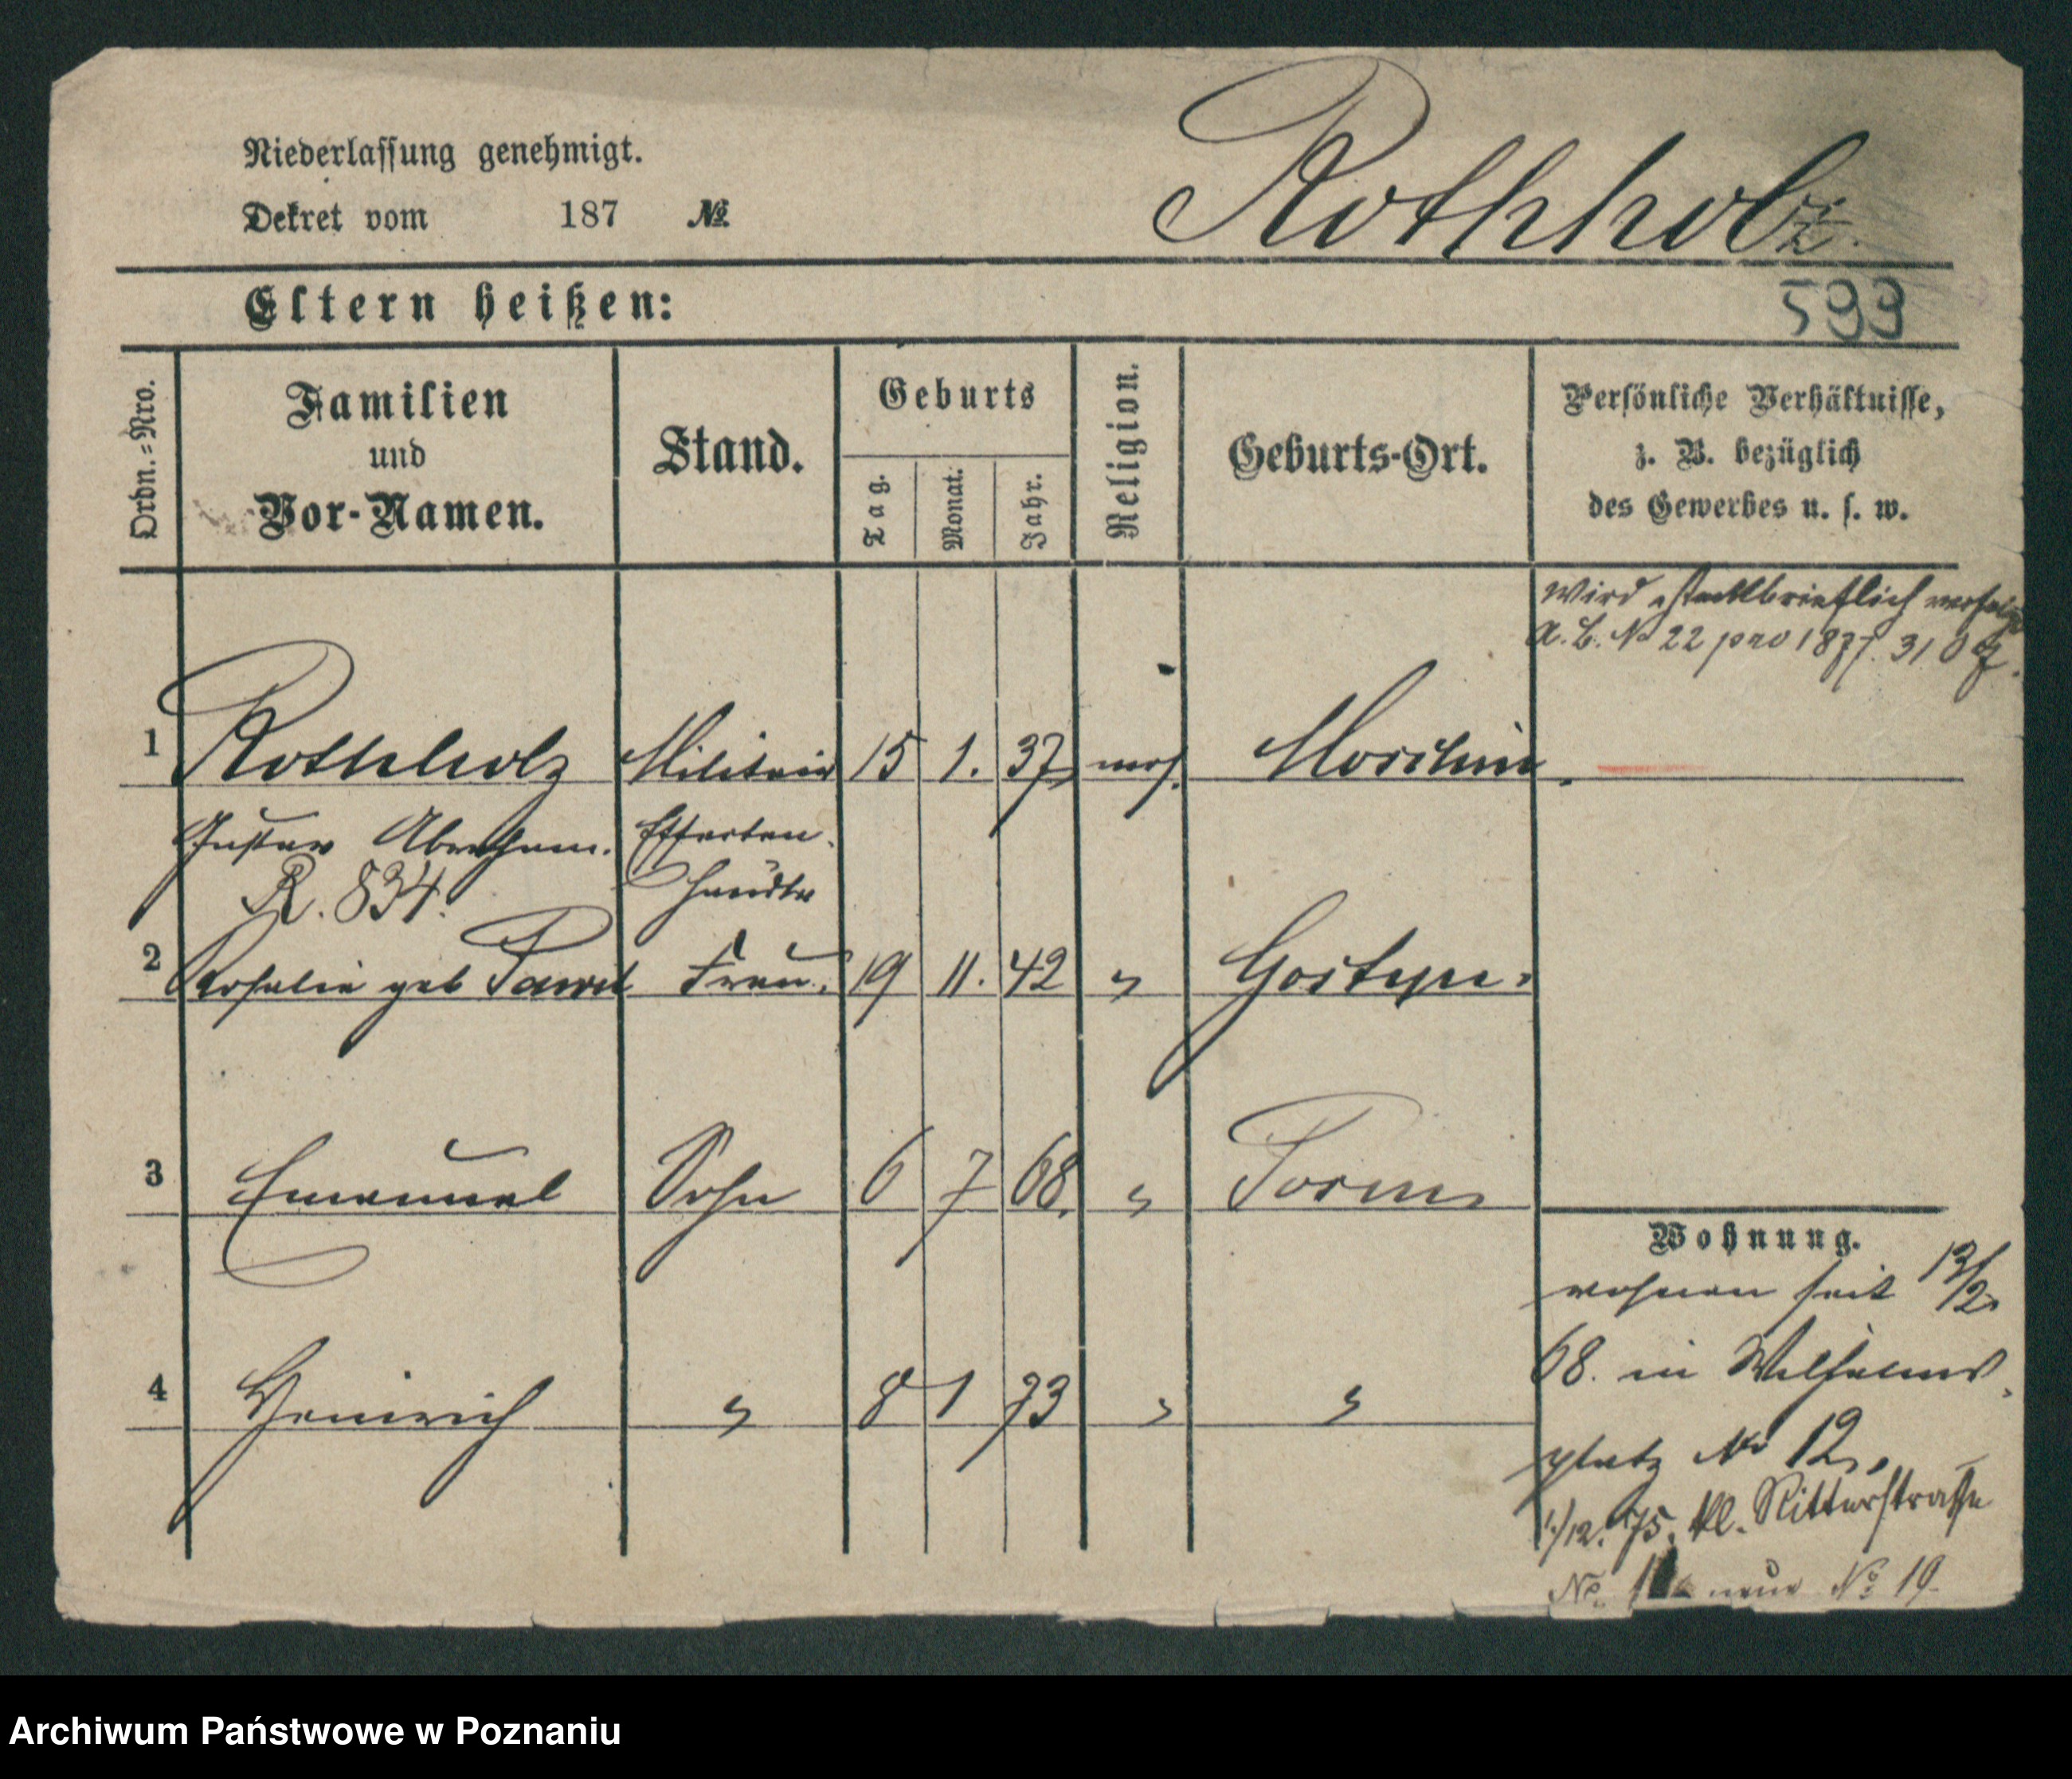 Niederlassung genehmigt.
Rothholz.
Dekret vom 187 №
Eltern heißen:
593
Ordn.=Nro.
Familien
und
Vor-Namen.
Stand.
Geburts
Tag.
Monat.
Jahr.
Religion.
Geburts-Ort.
Persönliche Verhältnisse,
z. B. bezüglich
des Gewerbes u. s. w.
Wird steckbrieflich verfolgt
A. L. No 22 pro 1877.
1 Rothholz Militair 15 1. 37 mos. Moschin.
Gustav Abraham. Effecten
R. 834. Händler
2 Rosalie geb Frau. 19 11. 42 " Gostyn.
3 Emanuel Sohn 6 7 68. " Posen
Wohnung.
wohnen seit 13/2
68. in Wilhelms
4 Heinrich " 8 1 73 " "
platz No 12.
1/12. 75. kl. Ritterstraße
No. neue No 19
Archiwum Państwowe w Poznaniu